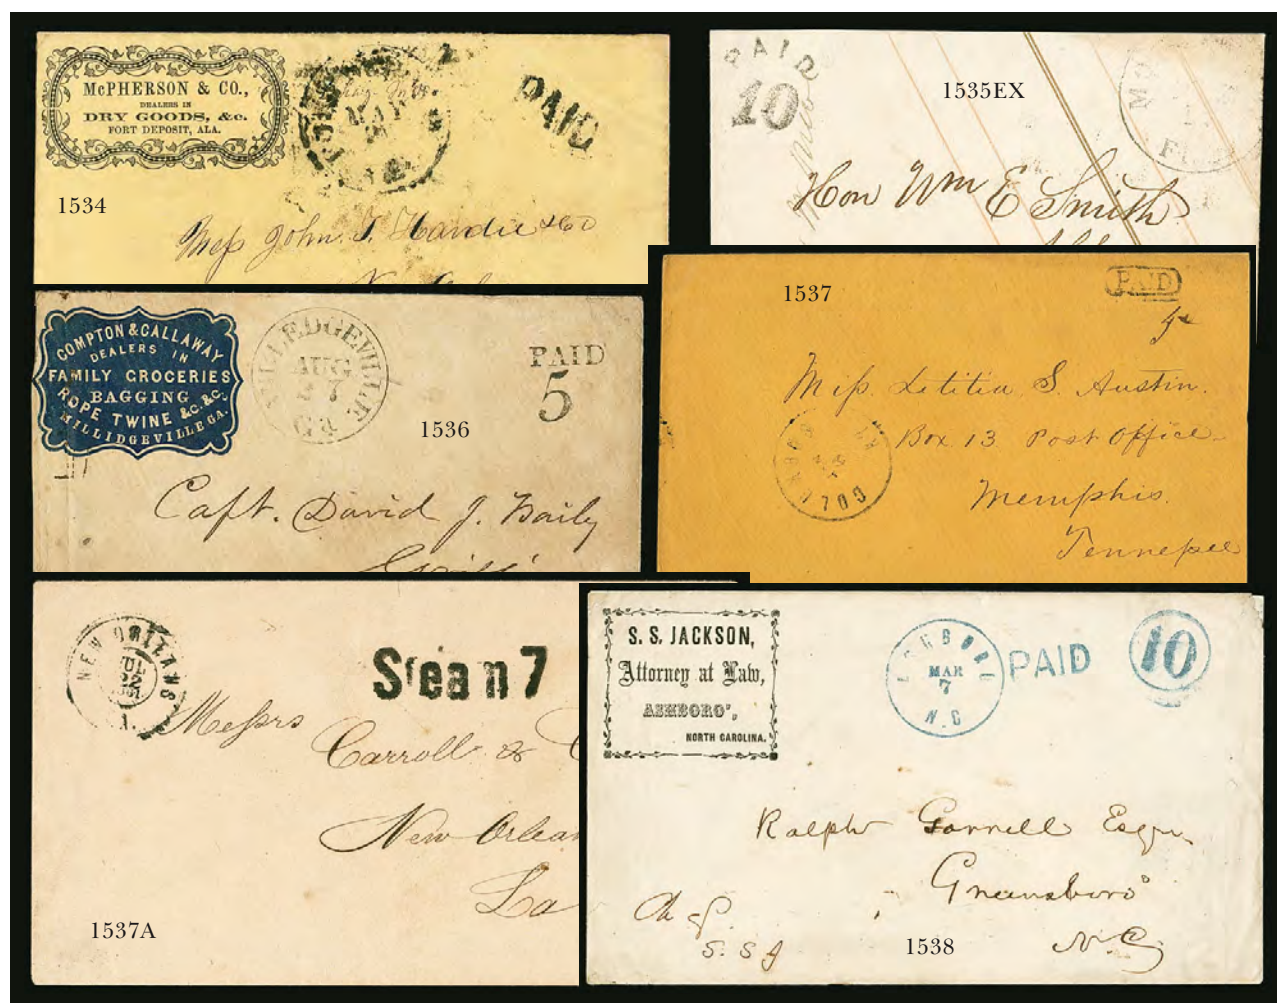 McPHERSON & CO.,
DEALERS IN
DRY GOODS, &c.
FORT DEPOSIT, ALA.
MAY
PAID
1534
Mess John T. Hardie & Co
PAID
10
1535EX
Hon Wm E Smith
COMPTON & CALLAWAY
DEALERS IN
FAMILY GROCERIES
BAGGING
ROPE TWINE &C.&C.
MILLIDGEVILLE GA.
MILLEDGEVILLE
AUG
27
Ga
PAID
5
1536
Capt. David J. Baily
1537
PAID
Miss Letitia S. Austin.
Box 13 Post Office
Memphis.
Tennessee
COLUMBUS KY
NEW ORLEANS
JUL
22
1861
LA.
Steam 7
Messrs
Carroll &
New Orlean
La
1537A
S. S. JACKSON,
Attorney at Law,
ASHBORO',
NORTH CAROLINA.
ASHBORO
MAR
7
N.C
PAID
10
Ralph Gorrell Esqr
Greensboro
N. C.
Chg.
S. S J
1538